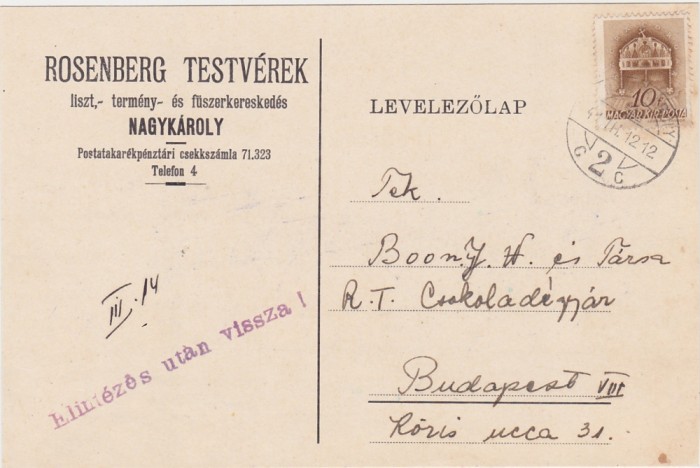 ROSENBERG TESTVÉREK
liszt,- termény- és fűszerkereskedés
NAGYKÁROLY
Postatakarékpénztári csekkszámla 71.323
Telefon 4
III. 14
Elintézés után vissza!
LEVELEZŐLAP
10
MAGYAR KIR. POSTA
III. 12 12
C 2 C
Tek.
Boon J. H. és Társa
R. T. Csokoládégyár
Budapest VIII
Kőris ucca 31.